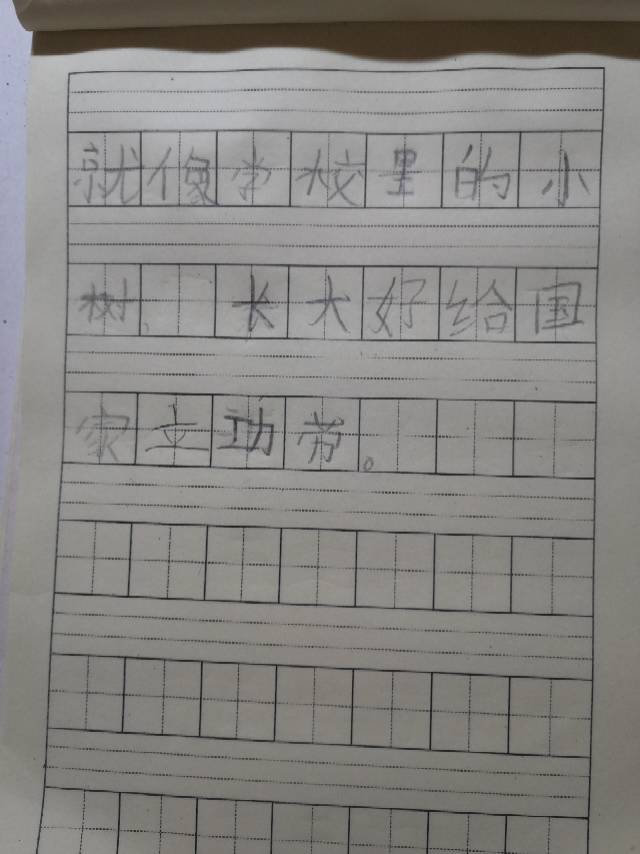 就像学校里的小
树、长大好给国
家立功劳。